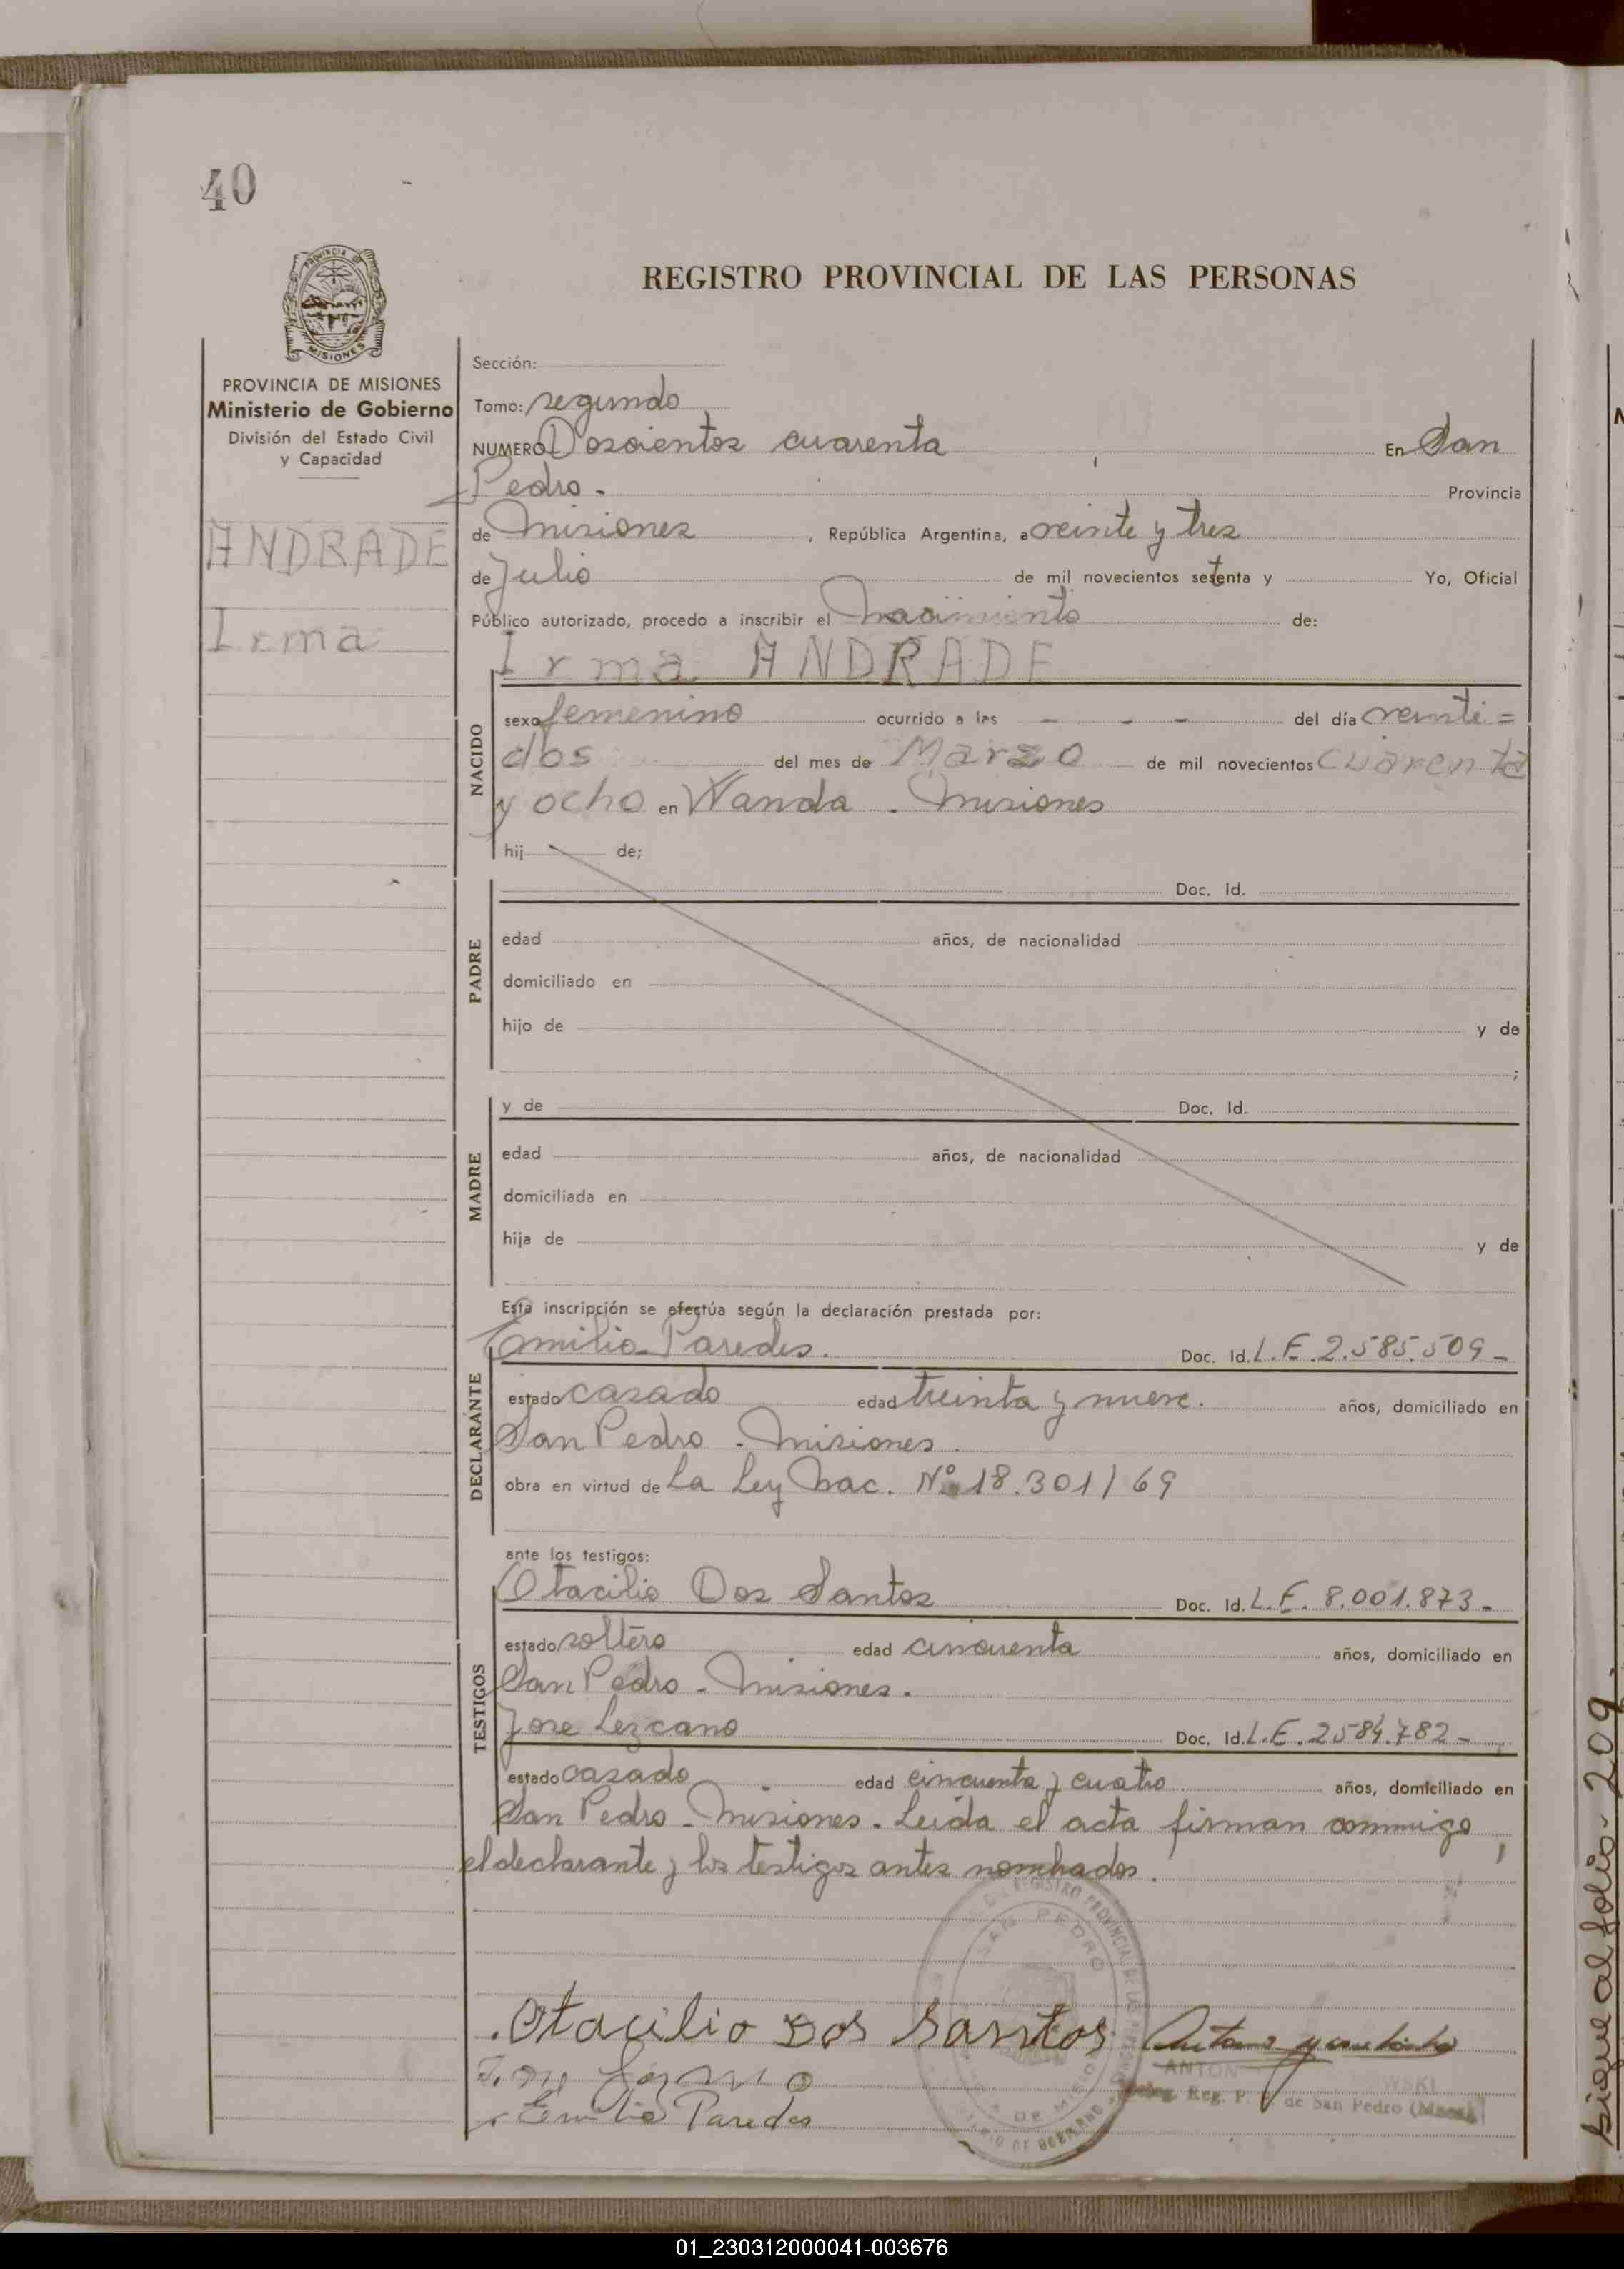 40
PROVINCIA DE
MISIONES
PROVINCIA DE MISIONES
Ministerio de Gobierno
División del Estado Civil
y Capacidad
ANDRADE
Irma
REGISTRO PROVINCIAL DE LAS PERSONAS
Sección:
Tomo: segundo
NUMERO Doscientos cuarenta En San
Pedro - Provincia
de Misiones, República Argentina, a veinte y tres
de Julio de mil novecientos setenta y Yo, Oficial
Público autorizado, procedo a inscribir el Nacimiento de:
Irma ANDRADE
NACIDO
sexo femenino ocurrido a las - - - del día veinti=
dos del mes de Marzo de mil novecientos cuarenta
y ocho en Wanda - Misiones
hij de;
PADRE
Doc. Id.
edad años, de nacionalidad
domiciliado en
hijo de y de
;
MADRE
y de Doc. Id.
edad años, de nacionalidad
domiciliada en
hija de y de
Esta inscripción se efectúa según la declaración prestada por:
DECLARANTE
Emilio Paredes. Doc. Id. L.E. 2.585.509-
estado casado edad treinta y nueve. años, domiciliado en
San Pedro - Misiones.
obra en virtud de La Ley Nac. Nº 18.301/69
ante los testigos:
TESTIGOS
Otacilio Dos Santos Doc. Id. L.E. 8.001.873-
estado soltero edad cincuenta años, domiciliado en
San Pedro - Misiones.
Jose Lezcano Doc. Id. L.E. 2584.782-
estado casado edad cincuenta y cuatro años, domiciliado en
San Pedro - Misiones. Leida el acta firman conmigo,
el declarante y los testigos antes nombrados.
REGISTRO PROVINCIAL DE LAS
SAN PEDRO
DE GOBIERNO
Otacilio Dos Santos
ANTON
Reg. P. de San Pedro
Emilio Paredes
sigue al folio - 209.
01_230312000041-003676